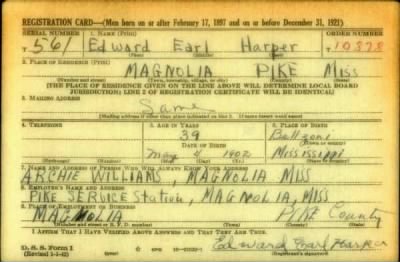 REGISTRATION CARD—(Men born on or after February 17, 1897 and on or before December 31, 1921)
SERIAL NUMBER 1. NAME (Print) ORDER NUMBER
T 561 Edward Earl Harper 10878
2. PLACE OF RESIDENCE (Print)
MAGNOLIA PIKE Miss
(Number and street) (Town, township, village, or city) (County) (State)
[THE PLACE OF RESIDENCE GIVEN ON THE LINE ABOVE WILL DETERMINE LOCAL BOARD
JURISDICTION; LINE 2 OF REGISTRATION CERTIFICATE WILL BE IDENTICAL]
3. MAILING ADDRESS
Same
[Mailing address if other than place indicated on line 2. If same insert word same]
4. TELEPHONE 5. AGE IN YEARS 6. PLACE OF BIRTH
39 Belzoni
DATE OF BIRTH (Town or county)
May 4 1902 Mississippi
(Exchange) (Number) (Mo.) (Day) (Yr.) (State or country)
7. NAME AND ADDRESS OF PERSON WHO WILL ALWAYS KNOW YOUR ADDRESS
ARCHIE WILLIAMS, MAGNOLIA MISS
8. EMPLOYER'S NAME AND ADDRESS
PIKE SERVICE Station, MAGNOLIA, MISS
9. PLACE OF EMPLOYMENT OR BUSINESS
MAGNOLIA PIKE County
(Number and street or R. F. D. number) (Town) (County) (State)
I AFFIRM THAT I HAVE VERIFIED ABOVE ANSWERS AND THAT THEY ARE TRUE.
D. S. S. Form 1
(Revised 1-1-42) Edward Earl Harper
(Registrant's signature)